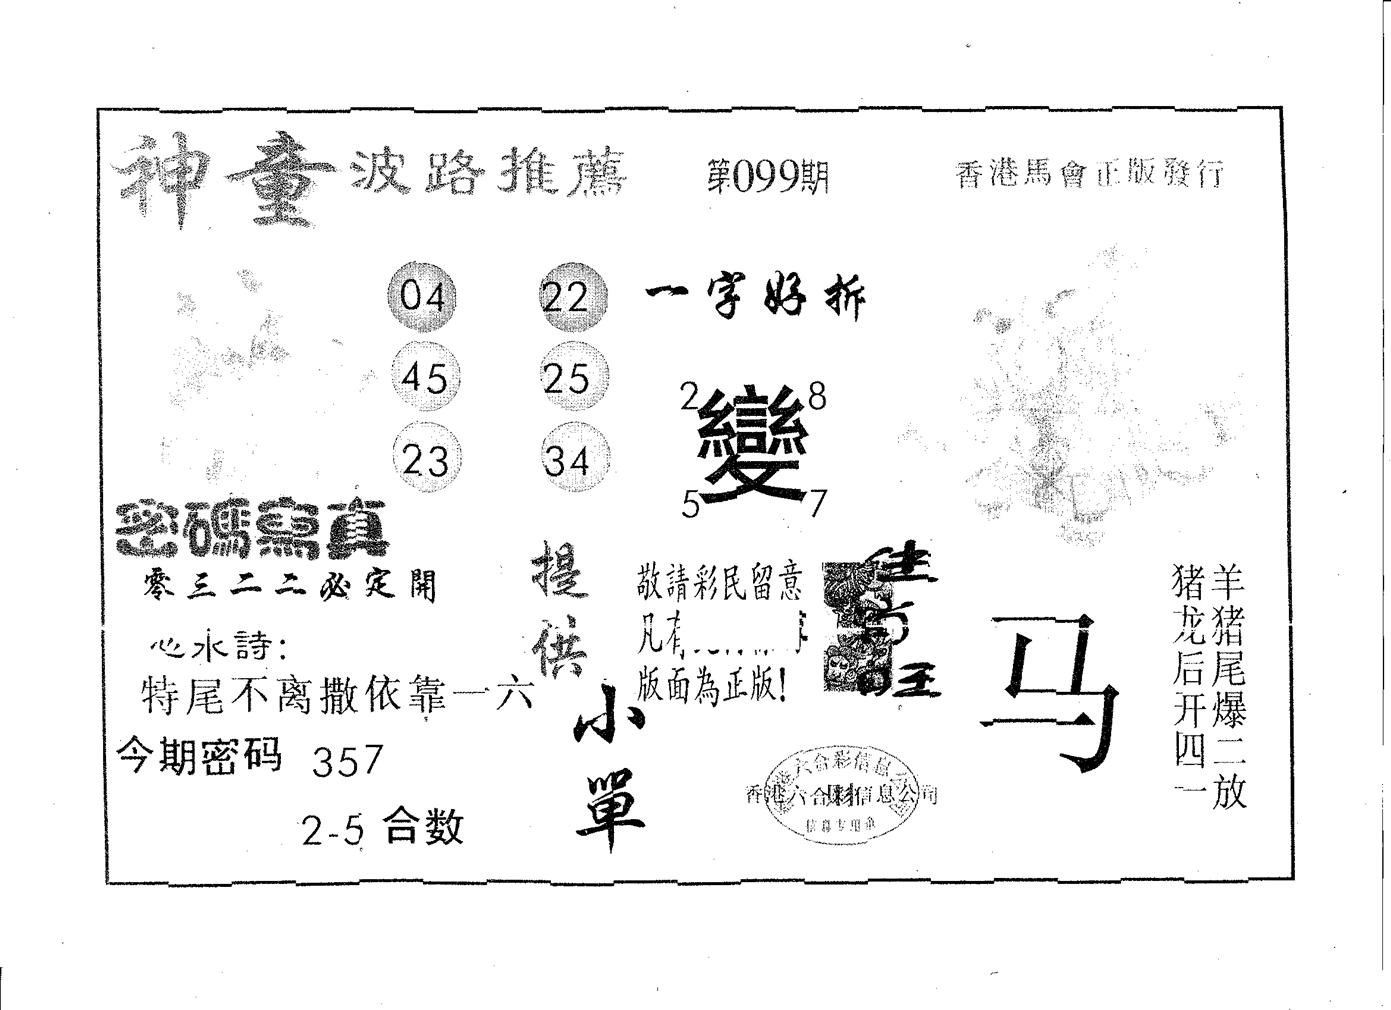 神童波路推薦
第099期
香港馬會正版發行
04 22
45 25
23 34
一字好拆
2 8
變
5 7
密碼寫真
零三二二必定開
心水詩:
特尾不离撒依靠一六
今期密码 357
2-5 合数
提供
小單
敬請彩民留意
凡有
版面為正版!
马
羊猪尾爆二放
猪龙后开四一
香港六合彩信息公司